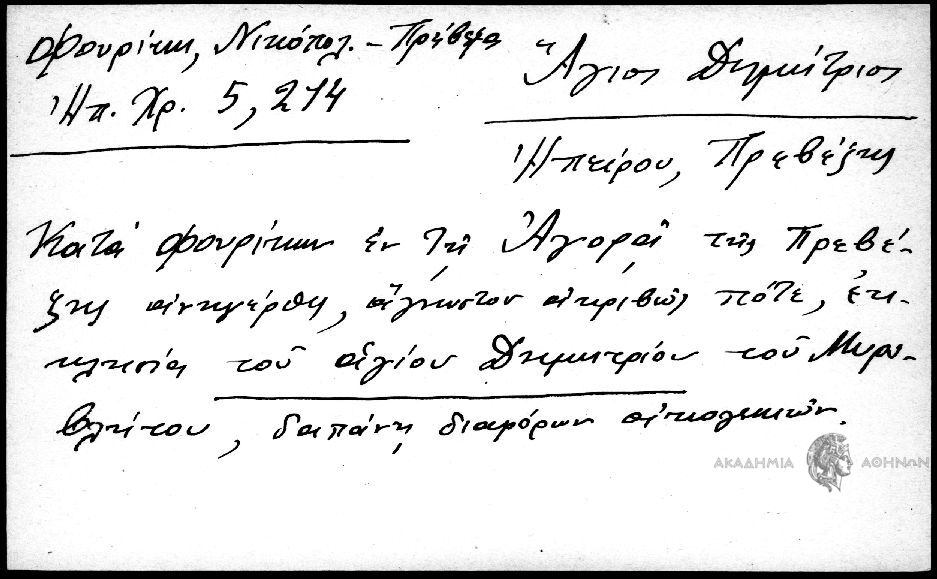 Φουρίκη, Νικόπολ. – Πρέβεζα
Ἠπ. Χρ. 5, 214
Ἅγιος Δημήτριος
Ἠπείρου, Πρεβέζης
Κατὰ Φουρίκην ἐν τῇ Ἀγορᾷ τῆς Πρεβέ-
ζης ἀνηγέρθη, ἄγνωστον ἀκριβῶς πότε, ἐκ-
κλησία τοῦ ἁγίου Δημητρίου τοῦ Μυρο-
βλήτου, δαπάνῃ διαφόρων
ΑΚΑΔΗΜΙΑ ΑΘΗΝΩΝ